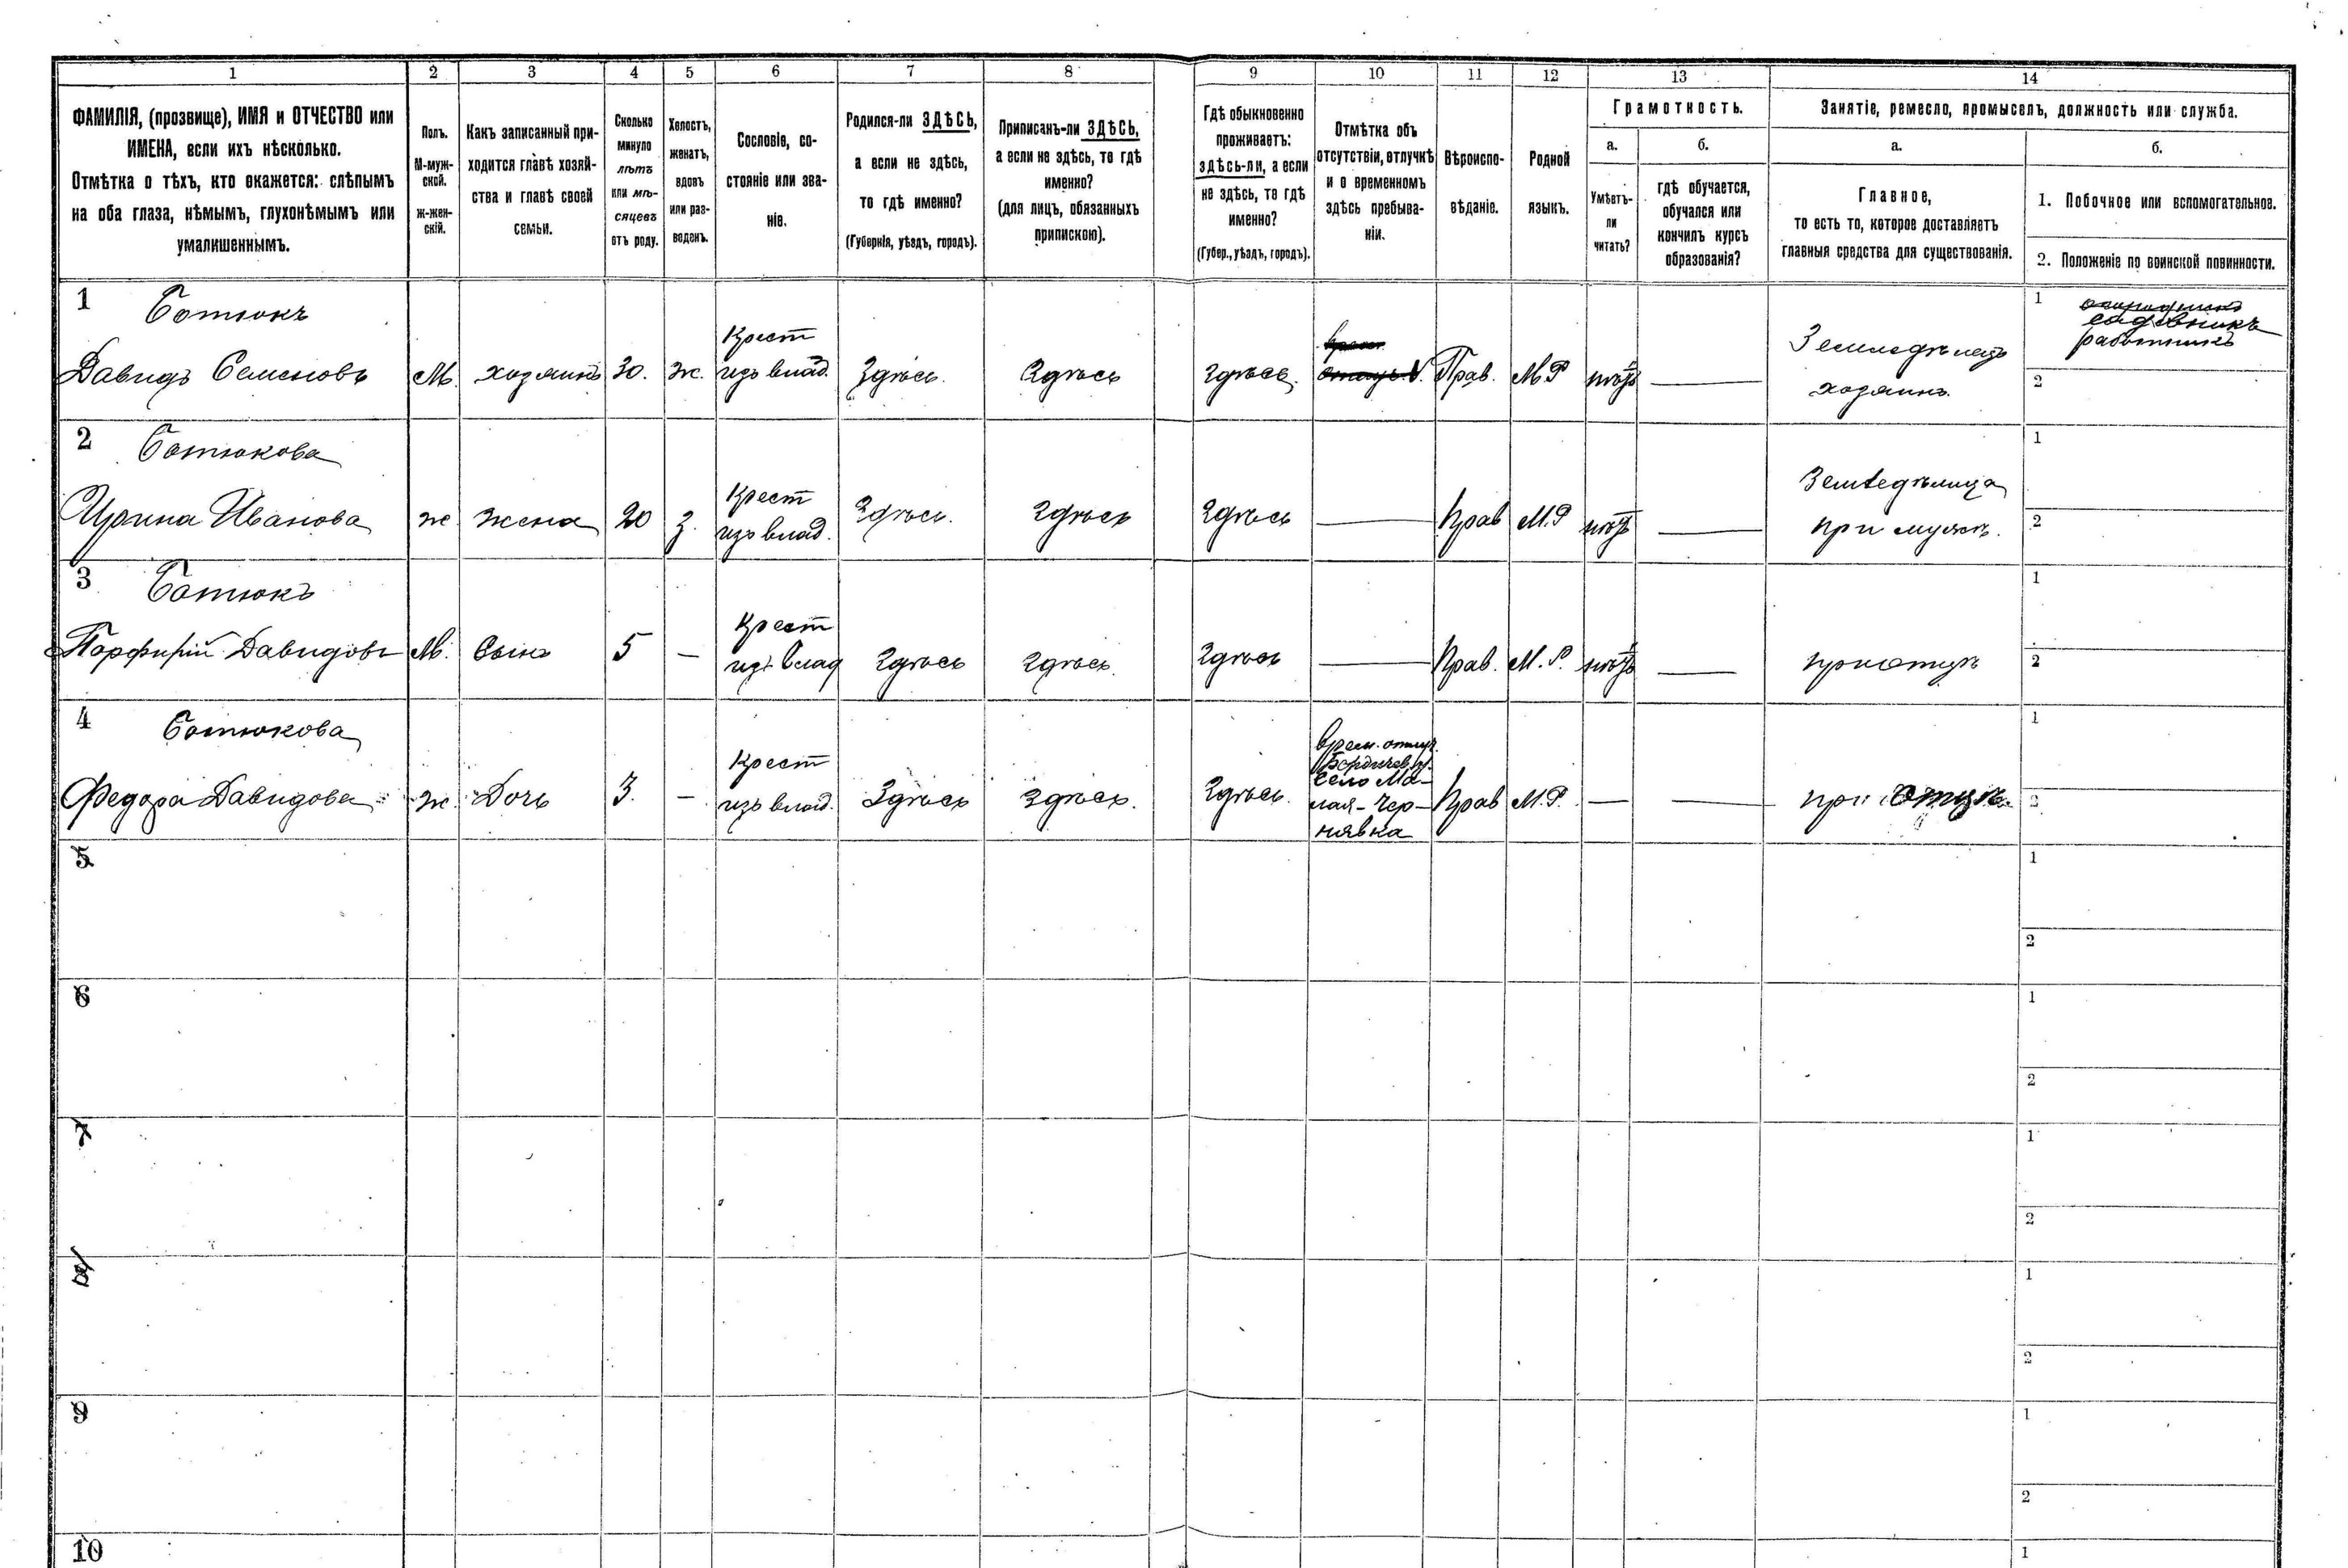 1 2 3 4 5 6 7 8 9 10 11 12 13 14
ФАМИЛІЯ, (прозвище), ИМЯ и ОТЧЕСТВО или
ИМЕНА, если ихъ нѣсколько.
Отмѣтка о тѣхъ, кто окажется: слѣпымъ
на оба глаза, нѣмымъ, глухонѣмымъ или
умалишеннымъ.
Полъ.
М-муж-
ской.
ж-жен-
скій.
Какъ записанный при-
ходится главѣ хозяй-
ства и главѣ своей
семьи.
Сколько
минуло
лѣтъ
или мѣ-
сяцевъ
отъ роду.
Холостъ,
женатъ,
вдовъ
или раз-
веденъ.
Сословіе, со-
стояніе или зва-
ніе.
Родился-ли ЗДѢСЬ,
а если не здѣсь,
то гдѣ именно?
(Губернія, уѣздъ, городъ).
Приписанъ-ли ЗДѢСЬ,
а если не здѣсь, то гдѣ
именно?
(для лицъ, обязанныхъ
припискою).
Гдѣ обыкновенно
проживаетъ:
здѣсь-ли, а если
не здѣсь, то гдѣ
именно?
(Губер., уѣздъ, городъ).
Отмѣтка объ
отсутствіи, отлучкѣ
и о временномъ
здѣсь пребыва-
ніи.
Вѣроиспо-
вѣданіе.
Родной
языкъ.
Грамотность.
а.
Умѣетъ-
ли
читать?
б.
гдѣ обучается,
обучался или
кончилъ курсъ
образованія?
Занятіе, ремесло, промыселъ, должность или служба.
а.
Главное,
то есть то, которое доставляетъ
главныя средства для существованія.
б.
1. Побочное или вспомогательное.
2. Положеніе по воинской повинности.
1
Ботюкъ
Давидъ Семеновъ
М.
хозяинъ
30.
ж.
Крест
изъ влад.
Здѣсь.
Здѣсь
Здѣсь.
Прав.
М.Р
нѣтъ
Земледѣлецъ
хозяинъ.
1
садовникъ
работникъ
2
2
Ботюкова
Ирина Иванова
ж
жена
20
з.
Крест
изъ влад.
Здѣсь.
Здѣсь
Здѣсь
Прав
М.Р
нѣтъ
Земледѣлица
при мужѣ.
1
2
3
Ботюкъ
Порфирій Давидовъ
М.
Сынъ
5
—
Крест
изъ влад
Здѣсь
Здѣсь.
Здѣсь
Прав.
М. Р.
нѣтъ
при отцѣ
1
2
4
Ботюкова
Федора Давидова
ж.
Дочь
3.
—
Крест
изъ влад.
Здѣсь
Здѣсь.
Здѣсь.
врем. отлуч.
Бердичев. у.
село Ма-
лая-Чер-
нявка
Прав
М.Р.
—
при отцѣ.
1
2
5
1
2
6
1
2
7
1
2
8
1
2
9
1
2
10
1